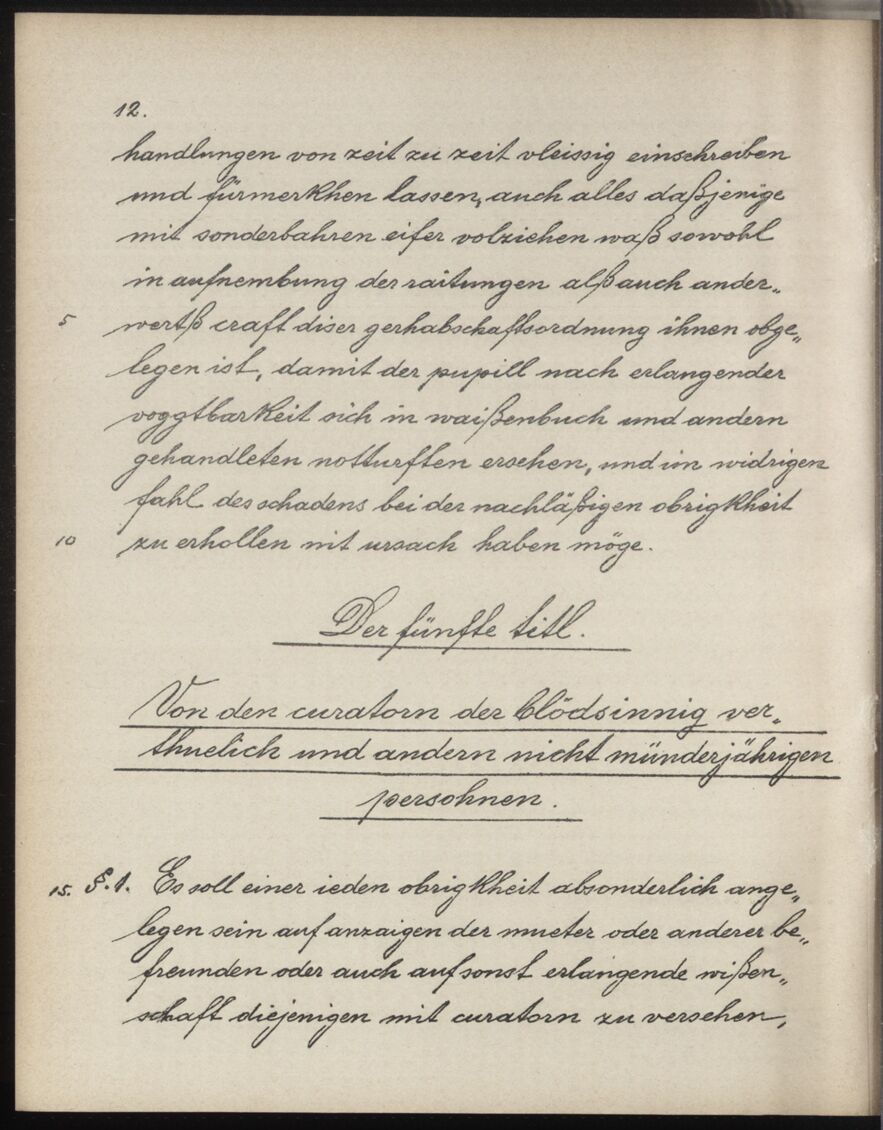 12.
handlungen von zeit zu zeit vleissig einschreiben
und fürmerkhen lassen, auch alles daßjenige
mit sonderbahren eifer volziehen waß sowohl
in aufnembung der raitungen alß auch ander„
5 wertß craft diser gerhabschaftsordnung ihnen obge„
legen ist, damit der pupill nach erlangender
voggtbarkeit sich in waißenbuch und andern
gehandleten notturften ersehen, und im widrigen
fahl des schadens bei der nachläßigen obrigkheit
10 zu erhollen nit ursach haben möge.
Der fünfte titl.
Von den curatorn der blödsinnig ver„
thuelich und andern nicht münderjährigen
persohnen.
15. §. 1. Es soll einer ieden obrigkheit absonderlich ange„
legen sein auf anzaigen der mueter oder anderer be„
freunden oder auch auf sonst erlangende wißen„
schaft diejenigen mit curatorn zu versehen,